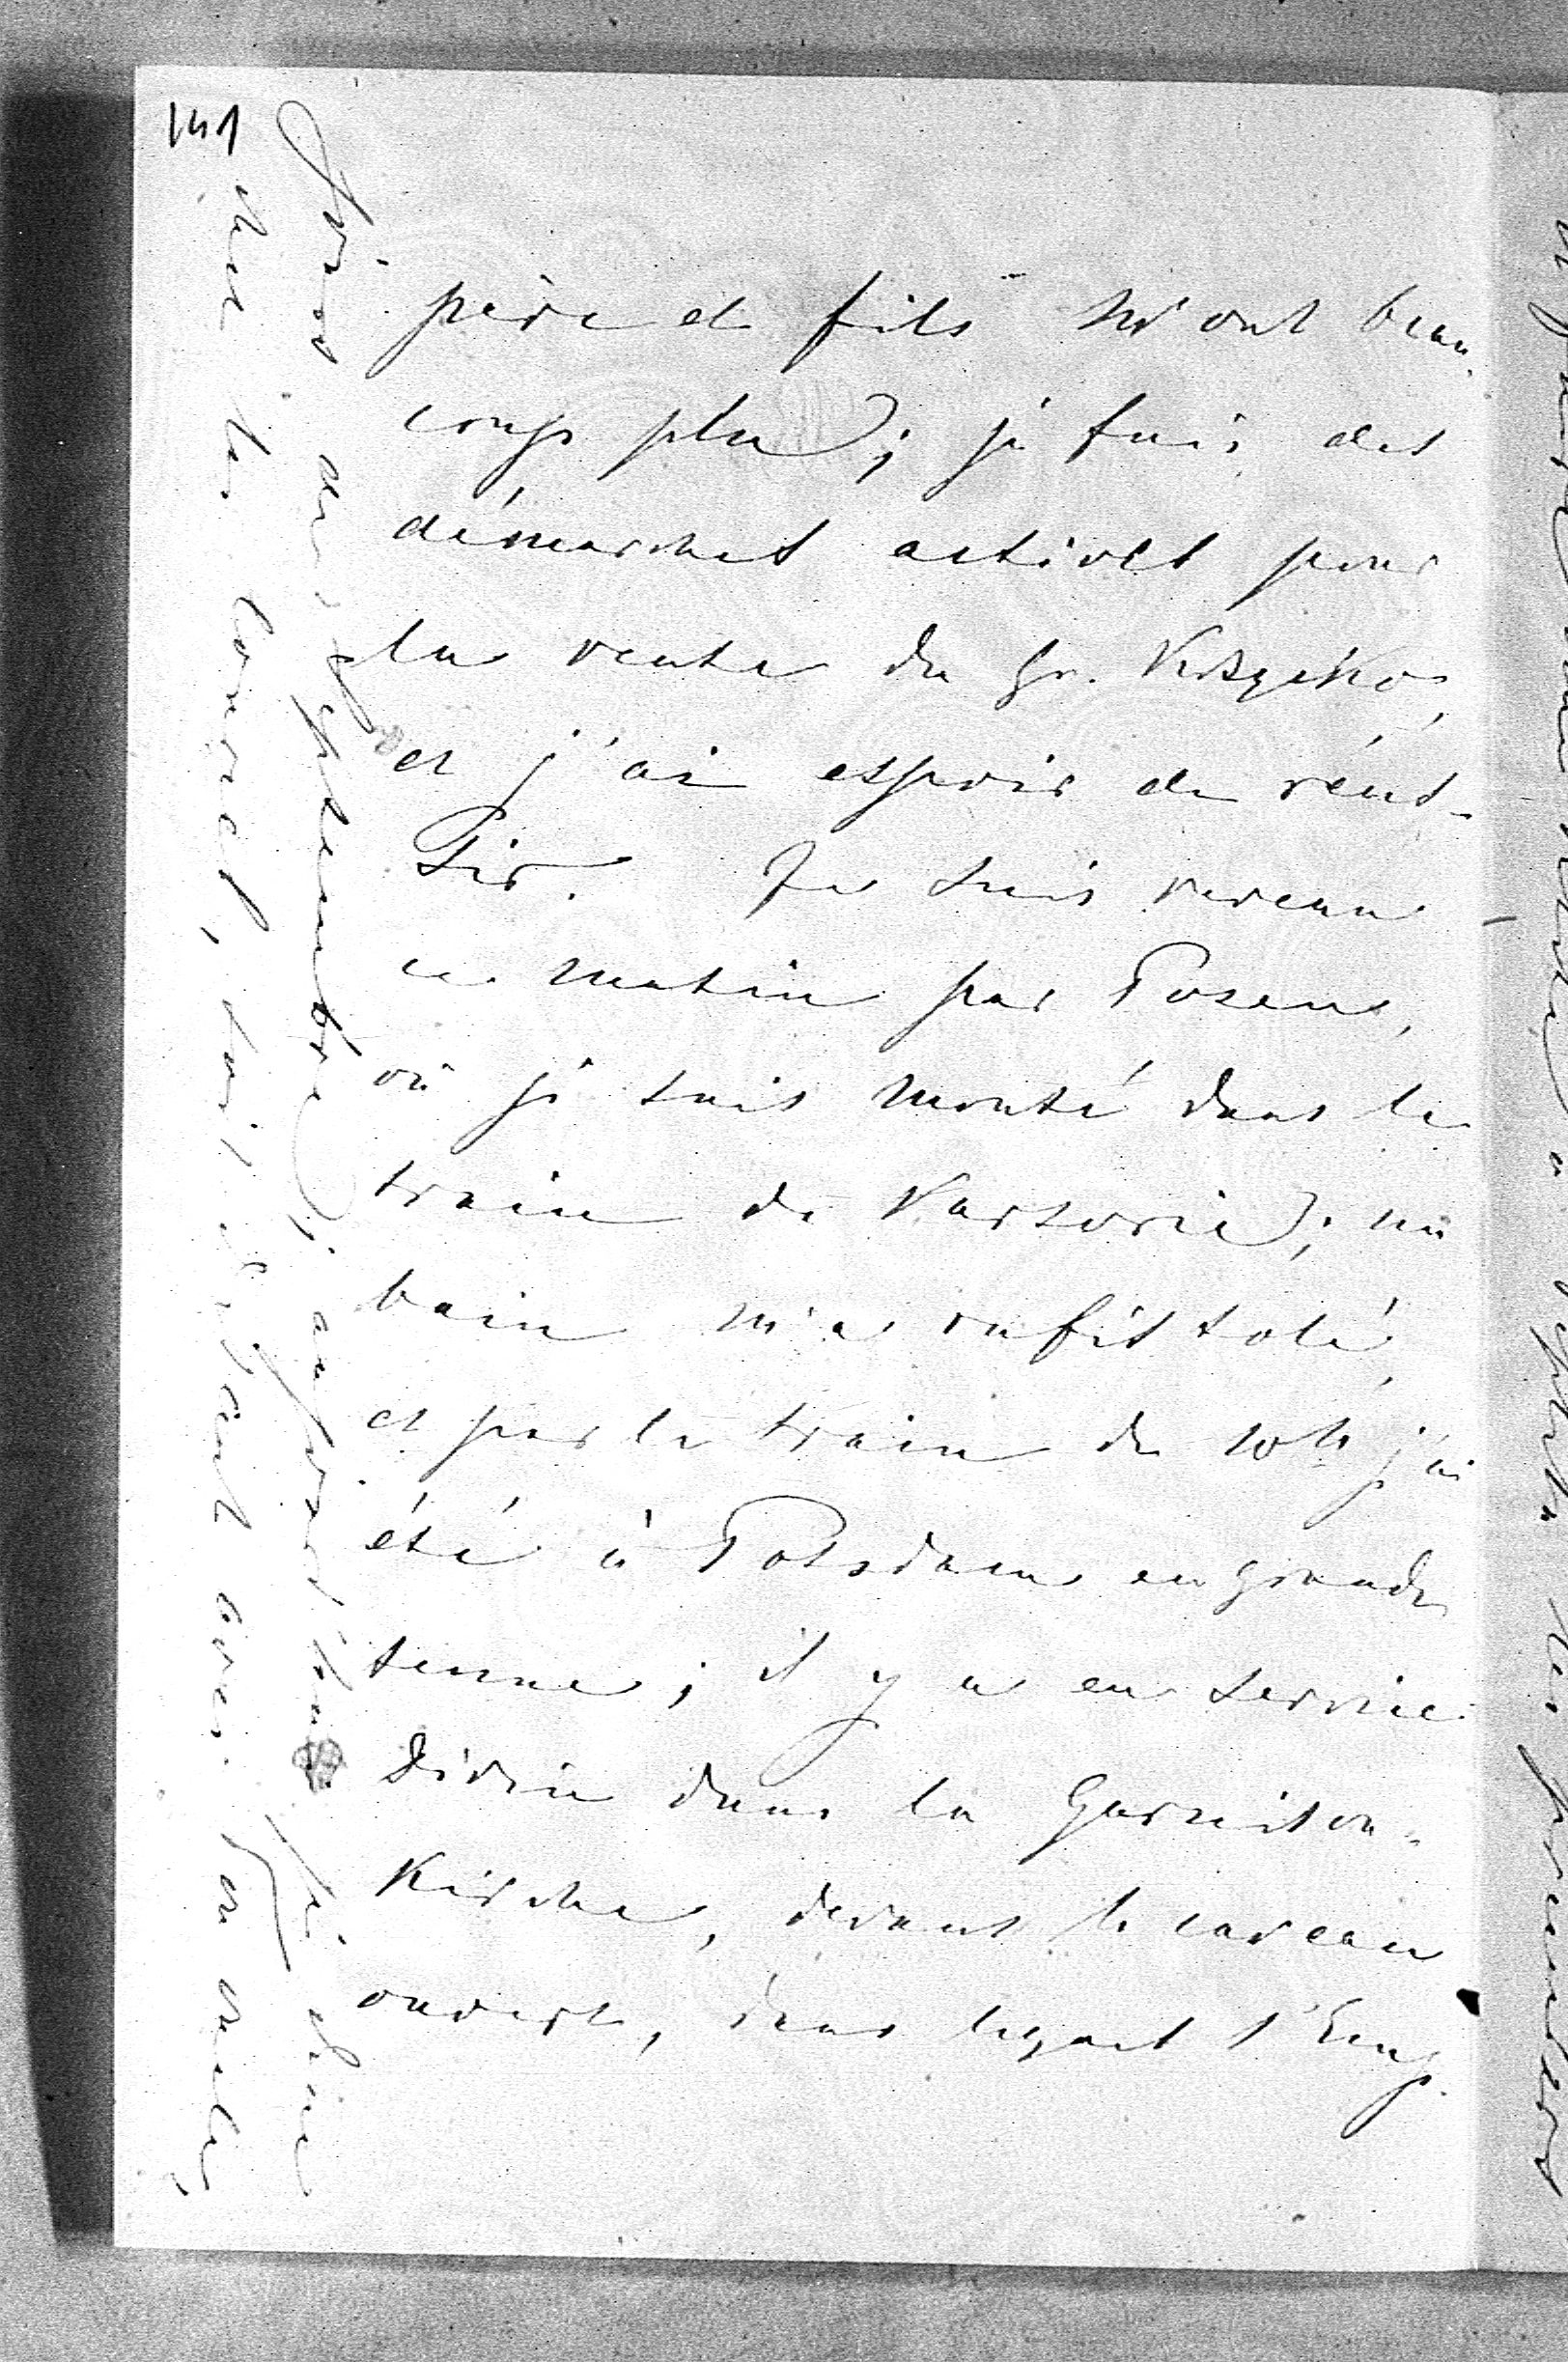 141
père et fils m'ont beau-
coup plu; je fais des
démarches actives pour
la vente du Gr.
et j'ai espoir de réus-
sir. Je suis revenu
ce matin par Posen,
où je suis monté dans le
train de Varsovie; un
bain m'a rafistolé,
et par le train de 10 h j'ai
été à Potsdam en grande
tenue; il y a eu service
divin dans la Garnison-
Kirche, devant le caveau
ouvert, dans lequel l'Emp.
de septembre; aujourd'hui je dîne
chez les